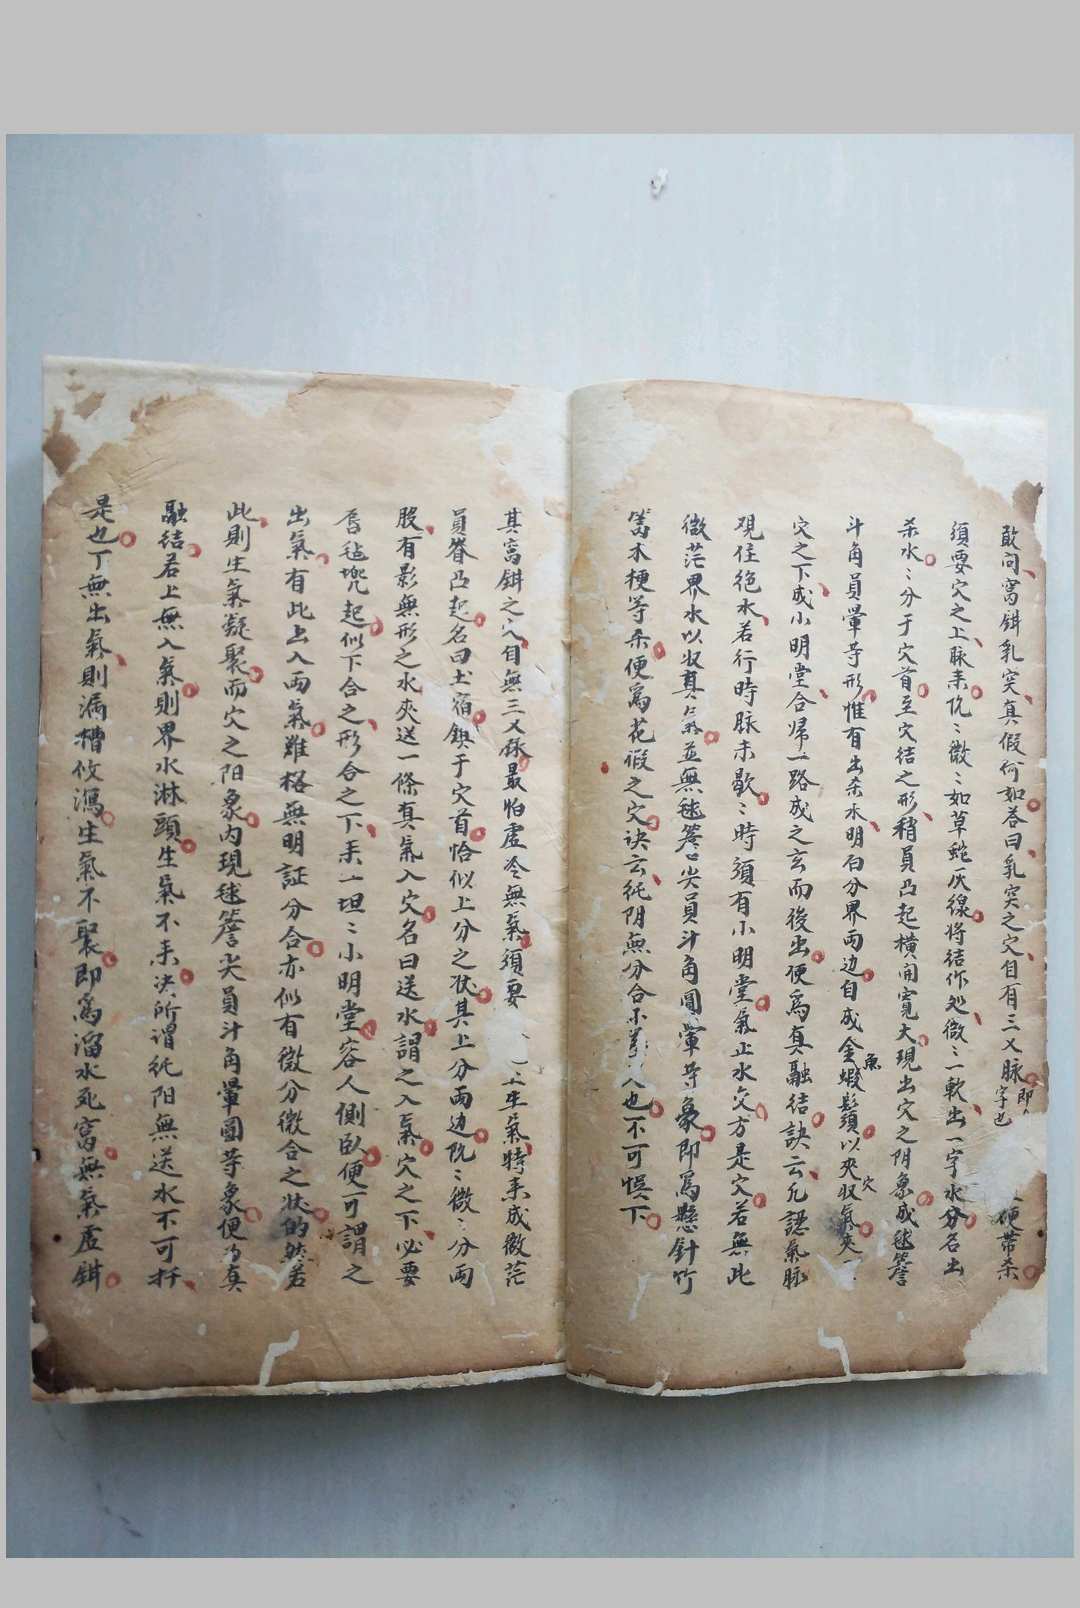 敢问窩鉗乳突真假何如荅曰乳突之穴自有三义脉即
字也
硬帶杀
須要穴之上脉来仉〻微〻如草蛇灰線将结作処微〻一軟出一字水分名出
杀水〻分于穴首至穴结之形稍員凸起横闹寬大現出穴之阴象成毬簷
斗角員暈等形惟有出杀水明白分界两边自成金蝦鬚以夾収氣夾
魚
穴
穴之下成小明堂合歸一路成之玄而後出便爲真融结訣云凡認氣脉
覌住絶水若行時脉未歇〻時須有小明堂氣止水交方是穴若無此
微茫界水以収真气並無毬簷口尖員斗角圓暈等象即爲懸針竹
篙木梗等杀便爲花假之穴诀云純阴無分合
人也不可悞下
其窩鉗之穴自無三义脉最怕虚冷無氣須要
上生氣特来成微茫
員脊凸起名曰土宿鎮于穴首恰似上分之状其上分两边仉〻微〻分两
股有影無形之水夾送一條真氣入穴名曰送水謂之入氣穴之下必要
唇毡兜起似下合之形合之下来一坦〻小明堂容人侧臥便可謂之
出氣有此上入两氣雖格無明証分合亦似有微分微合之状的然若
此則生氣凝聚而穴之阳象内現毬簷尖員斗角暈圓等象便为真
融结若上無入氣則界水淋頭生氣不来決所谓純阳無送水不可扦
是也丁無出氣則漏槽攸瀉生氣不聚即為溜水死窩無氣虚鉗